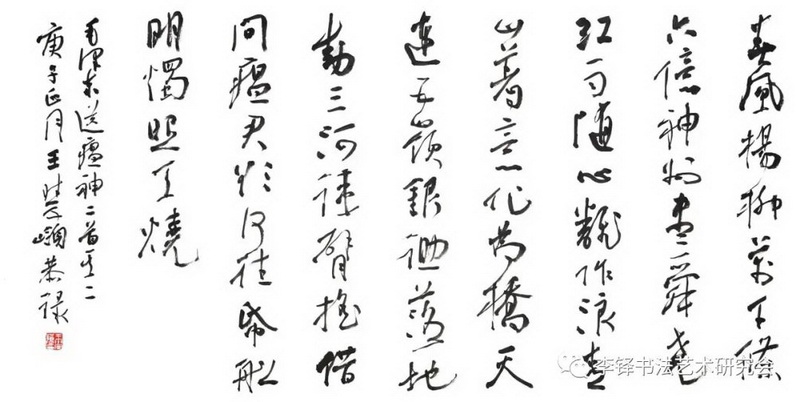 春風楊柳萬千條
六億神州盡舜堯
紅雨随心翻作浪青
山著意化為橋天
連五嶺銀锄落地
動三河鐵臂摇借
問瘟君欲何往紙船
明燭照天燒
毛澤東送瘟神二首其二
庚子正月王恭録
李铎书法艺术研究会